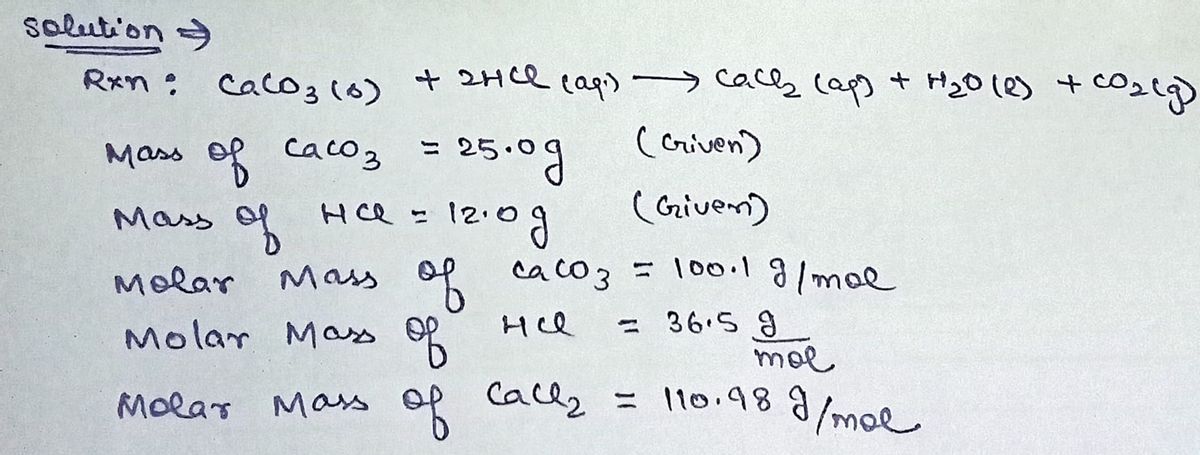 Solution ⇒
Rxn : CaCO3 (s) + 2HCl (aq) → CaCl2 (aq) + H2O (l) + CO2 (g)
Mass of CaCO3 = 25.0 g (Given)
Mass of HCl = 12.0 g (Given)
Molar Mass of CaCO3 = 100.1 g/mol
Molar Mass of HCl = 36.5 g/mol
Molar Mass of CaCl2 = 110.98 g/mol